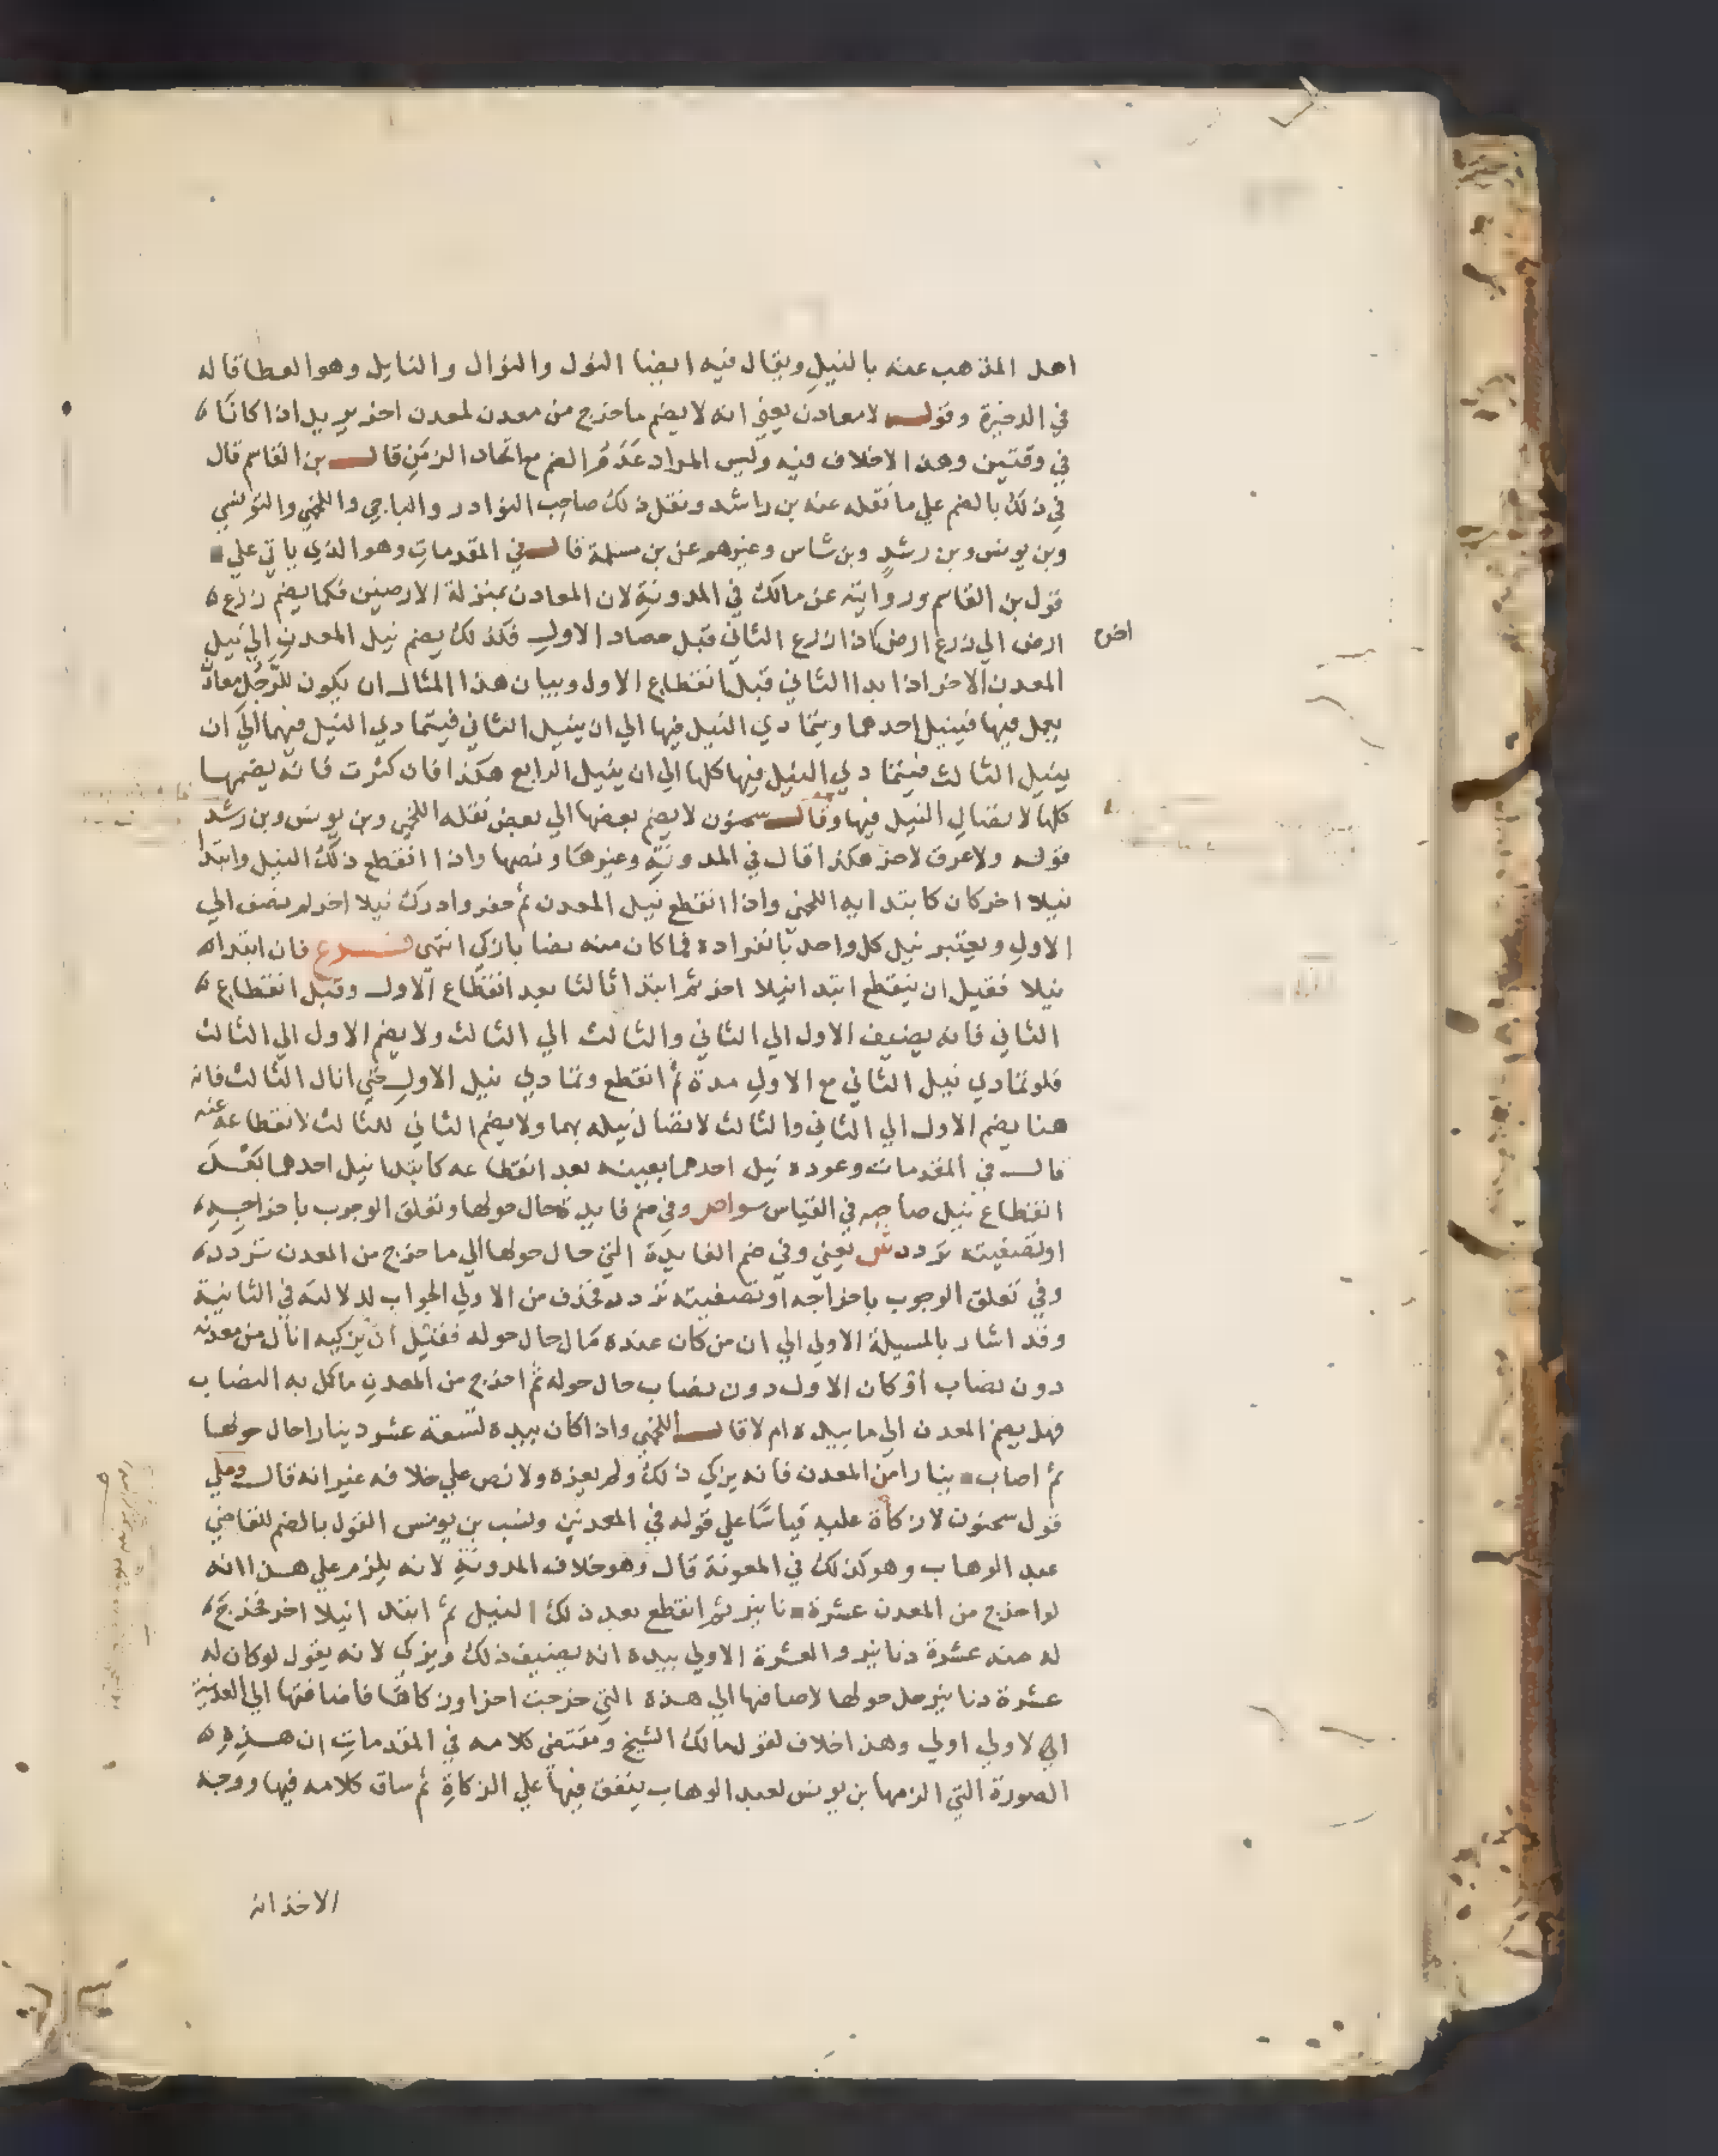 اهل المذهب عنه بالنيل ويقال فيه ايضا النول والنوال والنايل وهو العطا قاله
في الدخيرة وقوله لا معادن يعني انه لا يضم ما خرج من معدن لمعدن اخر يريد اذا كانا
في وقتين وهذا لا خلاف فيه وليس المراد عدم الضم مع اتحاد الزمن قال بن القاسم قال
في ذلك بالضم علي ما نقله عنه بن راشد ونقل ذلك صاحب النوادر والباجي واللخمي والتونسي
وبن يونس وبن رشد وبن شاس وغيرهم عن بن مسلمة قال في المقدمات وهو الذي ياتي علي
قول بن القاسم وروايته عن مالك في المدونة لان المعادن بمنزلة الارضين فكما يضم زرع
ارض الي زرع ارض اذا زرع الثاني قبل حصاد الاول فكذلك يضم نيل المعدن الي نيل
اخري
المعدن الاخر اذا بدا الثاني قبل انقطاع الاول وبيان هذا المثال ان يكون للرجل معادن
يعمل فيها فينيل احدهما ويتمادي النيل فيها الي ان ينيل الثاني فيتمادي النيل فيهما الي ان
ينيل الثالث فيتمادي النيل فيها كلها الي ان ينيل الرابع هكذا فان كثرت فانه يضمها
كلها لاتصال النيل فيها وقال سحنون لا يضم بعضها الي بعض نقله اللخمي وبن يونس وبن رشد
قوله ولا عرق لاخر هكذا قال في المدونة وغيرها ونصها واذا انقطع ذلك النيل وابتدا
نيلا اخر كان كابتدايه اللخمي واذا انقطع نيل المعدن ثم حفر وادرك نيلا اخر لم يضف الي
الاول ويعتبر نيل كل واحد بانفراده فما كان منه نصابا زكي انتهي فرع فان ابتدا
نيلا فقبل ان ينقطع ابتدا نيلا اخر ثم ابتدا ثالثا بعد انقطاع الاول وقبل انقطاع
الثاني فانه يضيف الاول الي الثاني والثالث الي الثالث ولا يضم الاول الي الثالث
فلو تمادي نيل الثاني مع الاول مدة ثم انقطع وتمادي نيل الاول حتي انال الثالث فانه
هنا يضم الاول الي الثاني والثالث لاتصال نيله بهما ولا يضم الثاني للثالث لانقطاعه عنه
قال في المقدمات وعوده نيل احدهما بعينه بعد انقطاعه كابتدا نيل احدهما بعد
انقطاع نيل صاحبه في القياس سوا ص وفي ضم فايدة حال حولها وتعلق الوجوب باخراجه
او تصفيته تردد ش يعني وفي ضم الفايدة التي حال حولها الي ما خرج من المعدن تردد
وفي تعلق الوجوب باخراجه او تصفيته تردد فحذف من الاولي الجواب لدلالته في الثانية
وقد اشار بالمسيلة الاولي الي ان من كان عنده مال حال حوله فقبل ان يزكيه انال من معدنه
دون نصاب او كان الاول دون نصاب حال حوله ثم اخرج من المعدن ما كمل به النصاب
فهل يضم المعدن الي ما بيده ام لا قال اللخمي واذا كان بيده تسعة عشر دينارا حال حولها
ثم اصاب دينارا من المعدن فانه يزكي ذلك ولم يعزه ولا نص علي خلافه غير انه قال وعلي
قول سحنون لا زكاة عليه قياسا علي قوله في المعدنين ونسب بن يونس القول بالضم للقاضي
عبد الوهاب وهو كذلك في المعونة قال وهو خلاف المدونة لانه يلزم علي هذا انه
لو اخرج من المعدن عشرة دنانير ثم انقطع بعد ذلك النيل ثم ابتدا نيلا اخر فخرج
له منه عشرة دنانير والعشرة الاولي بيده انه يضيف ذلك ويزكي لانه يقول لو كان له
عشرة دنانير حل حولها لاضافها الي هذه التي خرجت اخرا وزكاها فاضافتها الي المعدنية
الي الاولي اولي وهذا خلاف لقول مالك الشيخ ومقتضي كلامه في المقدمات ان هذه
الصورة التي الزمها بن يونس لعبد الوهاب يتفق فيها علي الزكاة ثم ساق كلامه فيها ووجه
الاخذ انه